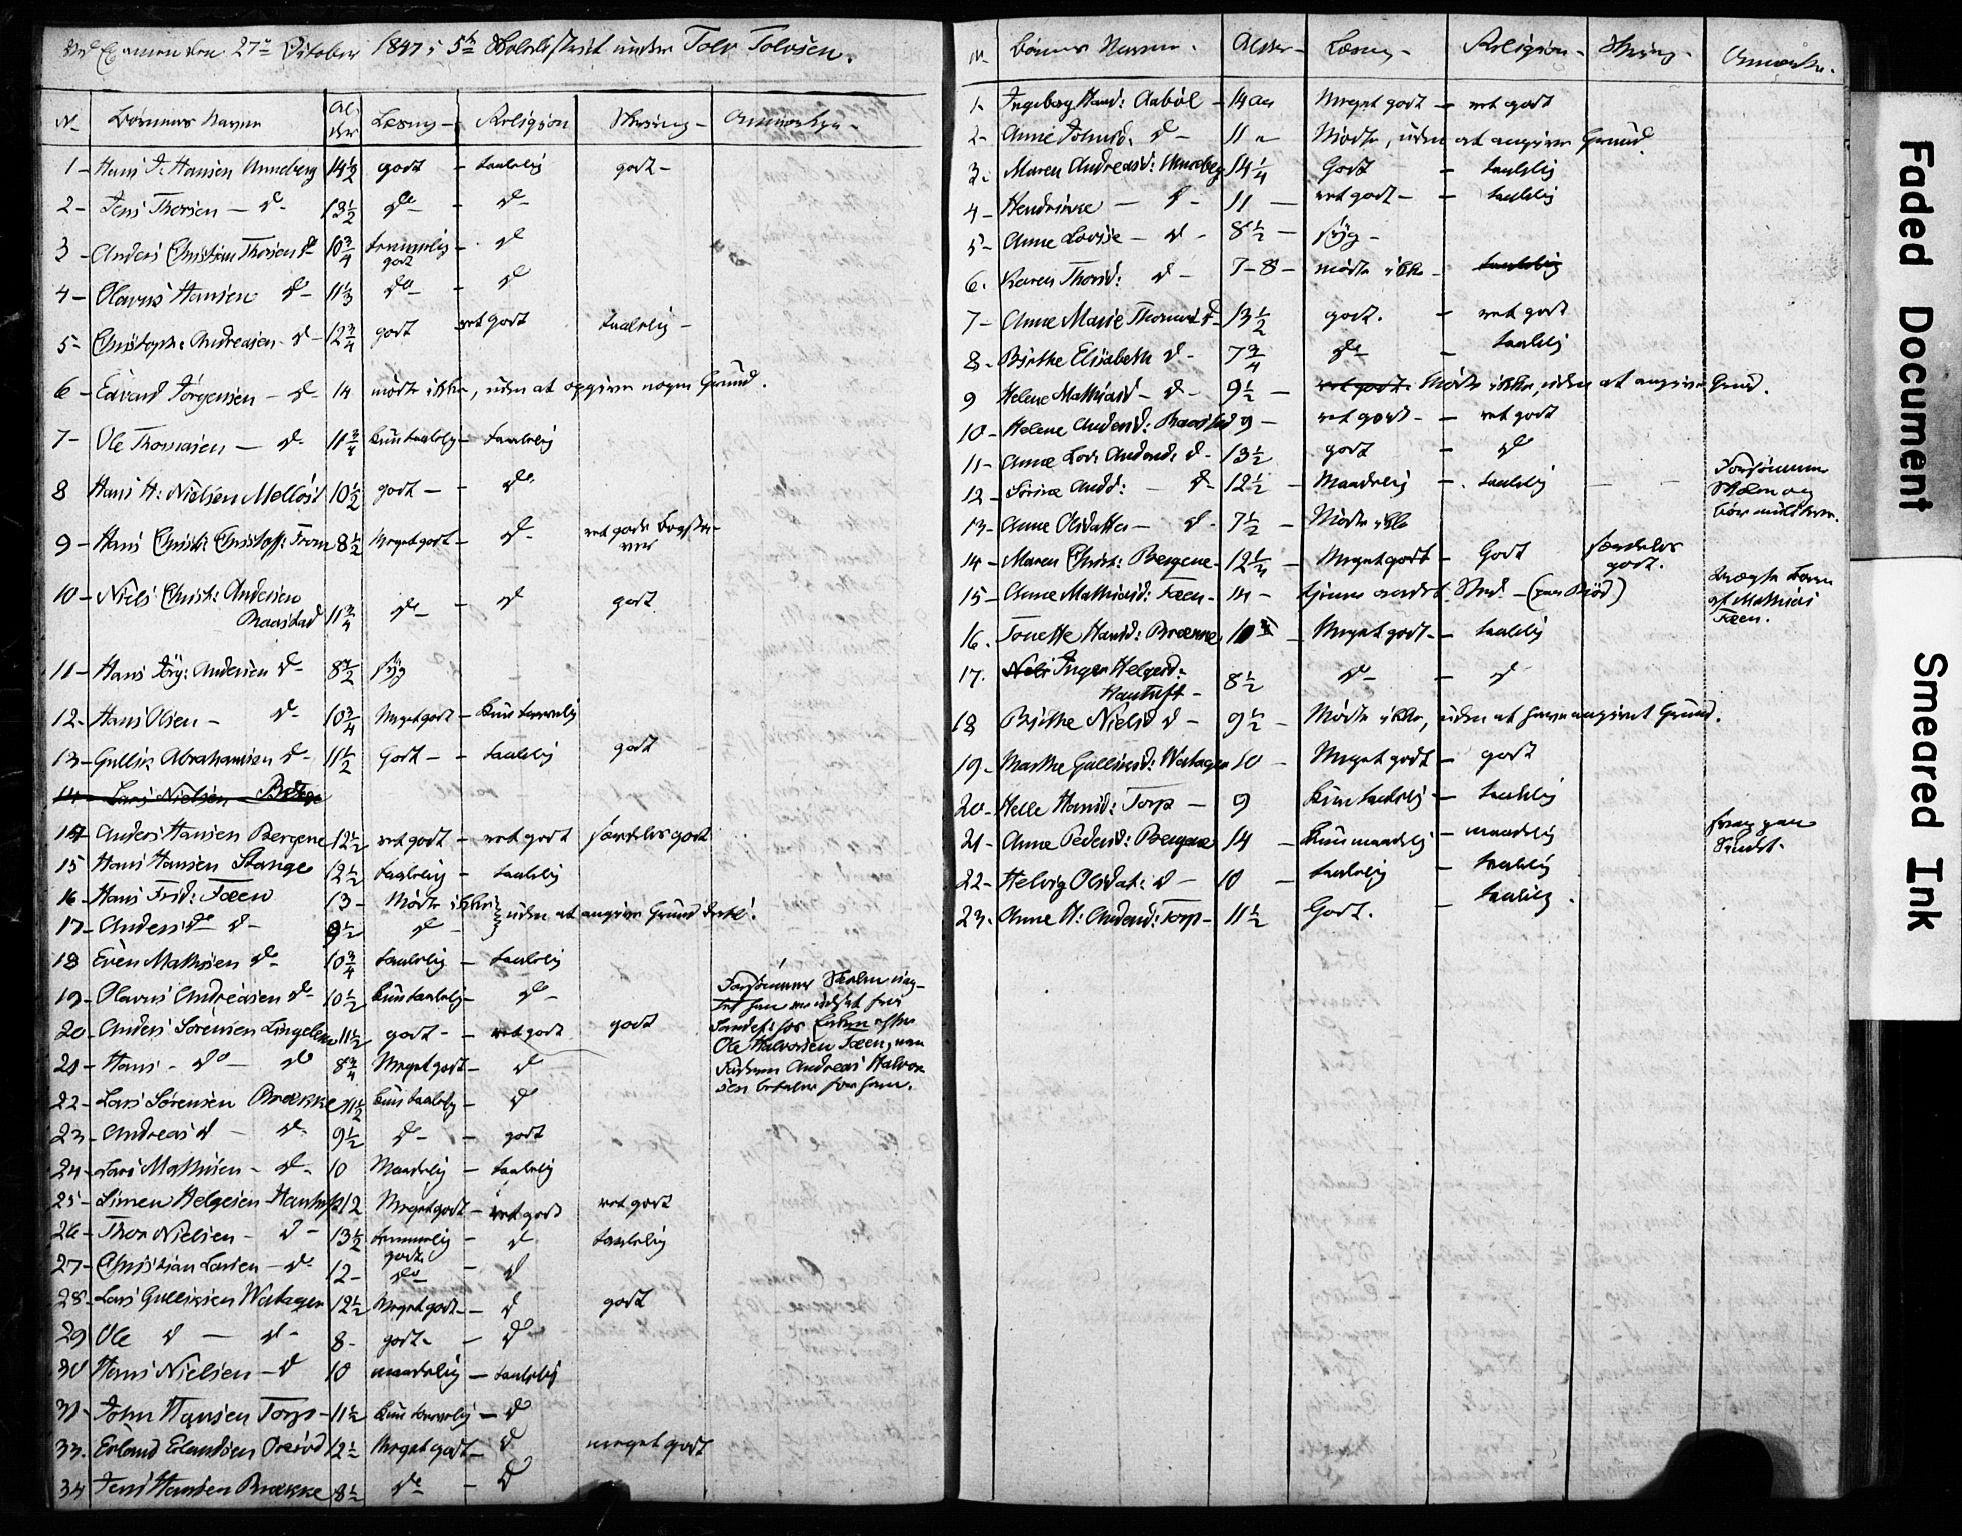 Ved Examen den 27de October 1847 i 5te Skoledistrict under Tolv Tolvsen.
N. Børnenes Navne Alder Læsning Religion Skrivning Anmærkn.
1 - Hans J: Hansen Anneberg 14 1/2 godt - taalelig godt -
2 - Jens Thorsen - do 13 1/2 do - do
3 - Anders Christian Thorsen do 10 3/4 temmelig godt - do
4 - Olavus Hansen do 11 1/3 do - do
5 - Christoph: Andreasen - do 12 3/4 godt ret godt taalelig -
6 - Edvard Jörgensen - do 14 mødte ikke, uden at opgive nogen Grund.
7 - Ole Thomasen - do 11 3/4 kun taalelig - taalelig
8 Hans H: Nielsen Mellös 10 1/2 godt - - do
9 - Hans Christ: Christoff: 8 1/2 Meget godt - do ret gode Bogstaver
10 - Niels Christ: Andersen
Raastad 11 3/4 do - do godt
11 - Hans Jörg: Andersen do 8 1/2 syg
12 - Hans Olsen - do 10 3/4 Meget godt - kun taalelig
13 - Gullik Abrahamsen do 11 1/2 Godt - - taalelig godt
14 - Lars Nielsen
14 Anders Hansen Bergene 12 1/2 ret godt - ret godt særdeles godt
15 Hans Hansen Stange 12 1/2 taalelig - taalelig
16 - Hans Frid: Foeen 13 - Mødte ikke
17 - Anders do do - 9 1/2 do - uden at angive Grund dertil.
18 Even Mathisen do 10 3/4 taalelig - taalelig
19 - Olavus Andreasen do 10 1/2 kun taalelig - do -
20 - Anders Sörensen Lingelem 11 1/2 godt - - ret godt godt
21 - Hans - do - do 8 3/4 Meget godt - do
22 - Lars Sörensen Brække 11 1/2 kun taalelig - do
23 - Andreas do - do 9 1/2 do - - godt
24 - Lars Mathisen - do 10 Maadelig - taalelig
25 - Simen Helgesen Hauntuft 12 Meget godt - ret godt ret godt
26 - Thor Nielsen - do - 13 1/2 temmelig godt - do taalelig
27 - Christian Larsen - do 12 - do - do
28 - Lars Gulliksen Watager 12 1/2 Meget godt - do godt
29 Ole do - do - 8 - godt - - do
30 Hans Nielsen - do 10 maadelig - taalelig
31 - John Hansen Torp - 11 1/2 kun taalelig - do
33. Erland Erlandsen 12 1/2 Meget godt - do meget godt
34 Jens Hansen Brække 8 1/2 do - do
Forsømmer Skolen uag-
tet han er udsat fra
Sandef: hos Enken efter
Ole Halvorsen Foeen, men
Faderen Andreas Halvor
sen betaler for ham.
N. Børnenes Navne. Alder - Læsning - Religion - Skrivng - Anmærkn.
1. Ingeborg Hansd: Aaböl - 14 Aar Meget godt - ret godt
2 - Anne Johnsd. do - 11 " Mødte, uden at angive Grund.
3. Maren Andreasd: Anneberg 14 1/4 Godt - taalelig
4 - Hendrikke - do - 11 - ret godt - - taalelig
5 - Anne Lovise - do - 8 1/2 - syg -
6. Karen Thorsd: do - 7-8 - mødte ikke - taalelig
7 - Anne Marie Thomasd - 13 1/2 godt. - ret godt
8 - Birthe Elisabeth do - 7 3/4 do - taalelig
9 Helene Mathiasd - do - 9 1/2 - ret godt. Mødte ikke, uden at angive Grund.
10 - Helene Andersd: Raastad 9 - ret godt - - ret godt
11 - Anne Lov: Andersd: do - 13 1/2 godt do
12 - Sörine Andd: - do - 12 1/2 - Maadelig - taalelig - - Forsømmer Skolen og bør mulkteres.
13 - Anne Olsdatter - do - 7 1/2 - Mødte ikke
14 - Maren Christ: Bergene - 12 1/4 - Meget godt - Godt særdeles godt.
15 - Anne Mathiasd: Foeen - 14 - tjener andet Sted - (paa Bjöd) uægte Barn af Mathias Foeen.
16. Tonette Hansd: Brække 10 - Meget godt - - taalelig
17. Inger Helgesd:
Hauntuft - 8 1/2 do - - do
18 Birthe Nielsd do - 9 1/2 - Mødte ikke, uden at have angivet Grund.
19 - Marthe Gulliksd: Watager 10 - Meget godt - godt
20 - Helle Hansd: Torp - 9 kun taalelig - taalelig
21 - Anne Pedersd: Bergene 14 - kun maadelig - maadelig
22 - Helvig Olsdat: do - 10 - taalelig - taalelig
23. Anne H: Andersd: Torp - 11 1/2 Godt. - taalelig.
Faded Document
Smeared Ink